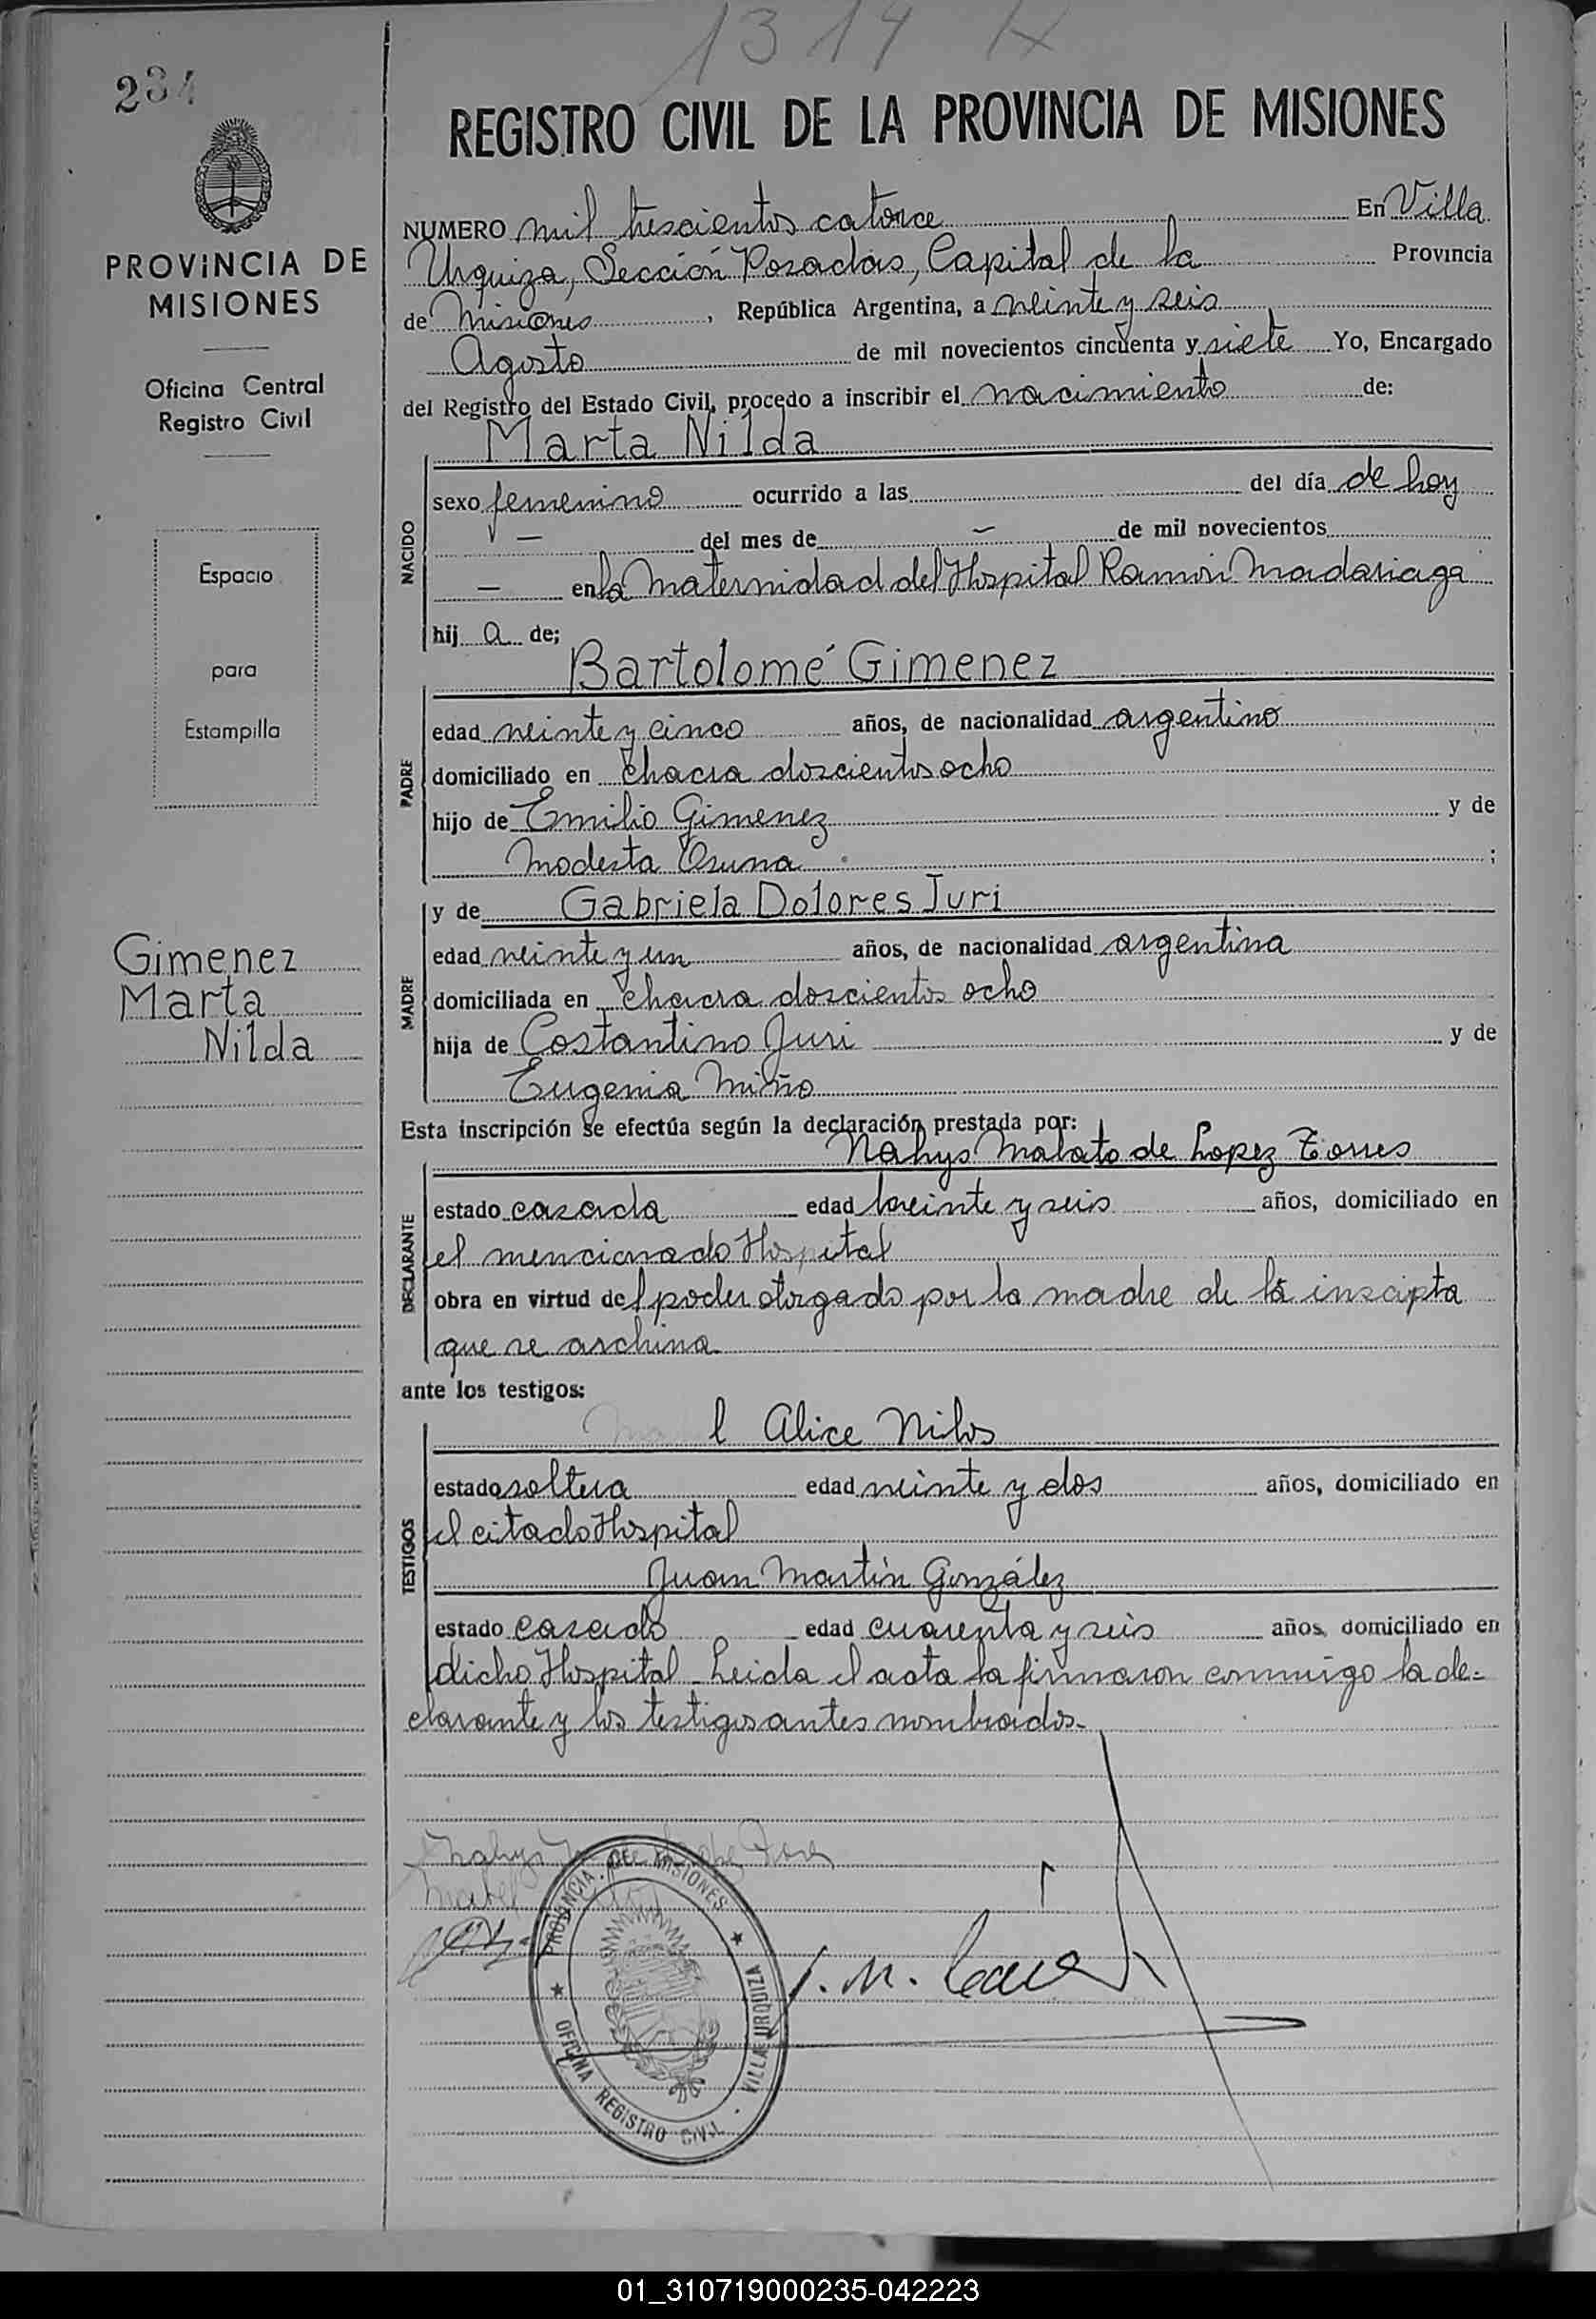 1314
234
REGISTRO CIVIL DE LA PROVINCIA DE MISIONES
PROVINCIA DE
MISIONES
Oficina Central
Registro Civil
Espacio
para
Estampilla
Gimenez
Marta
Nilda
NUMERO mil trescientos catorce En Villa
Urquiza, Sección Posadas, Capital de la Provincia
de Misiones, República Argentina, a veinte y seis
Agosto de mil novecientos cincuenta y siete Yo, Encargado
del Registro del Estado Civil, procedo a inscribir el nacimiento de:
Marta Nilda
NACIDO
sexo femenino ocurrido a las del día de hoy
— del mes de — de mil novecientos
— en la Maternidad del Hospital Ramón Madariaga
hij a de;
Bartolomé Gimenez
PADRE
edad veinte y cinco años, de nacionalidad argentino
domiciliado en chacra doscientos ocho
hijo de Emilio Gimenez y de
Modesta Osuna ;
y de Gabriela Dolores Juri
MADRE
edad veinte y un años, de nacionalidad argentina
domiciliada en chacra doscientos ocho
hija de Costantino Juri y de
Eugenia Miño
Esta inscripción se efectúa según la declaración prestada por:
Nahys Malato de Lopez Torres
DECLARANTE
estado casada edad treinte y seis años, domiciliado en
el mencionado Hospital
obra en virtud del poder otorgado por la madre de la inscipta
que se archiva
ante los testigos:
l Alice Nilos
TESTIGOS
estado soltera edad veinte y dos años, domiciliado en
el citado Hospital
Juan Martín González
estado casado edad cuarenta y seis años, domiciliado en
dicho Hospital. Leida el acta la firmaron conmigo la de=
clarante y los testigos antes nombrados.-
PROVINCIA DE MISIONES
VILLA URQUIZA
OFICINA REGISTRO CIVIL
01_310719000235-042223